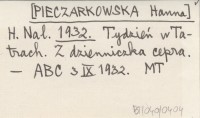 [PIECZARKOWSKA Hanna]
H. Nał. 1932. Tydzień w Ta-
trach. Z dzienniczka cepra.
— ABC 3 IX 1932. MT